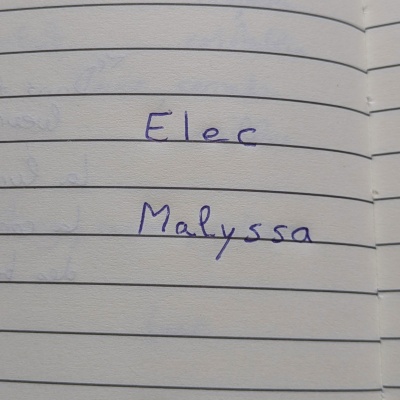 Elec
Malyssa